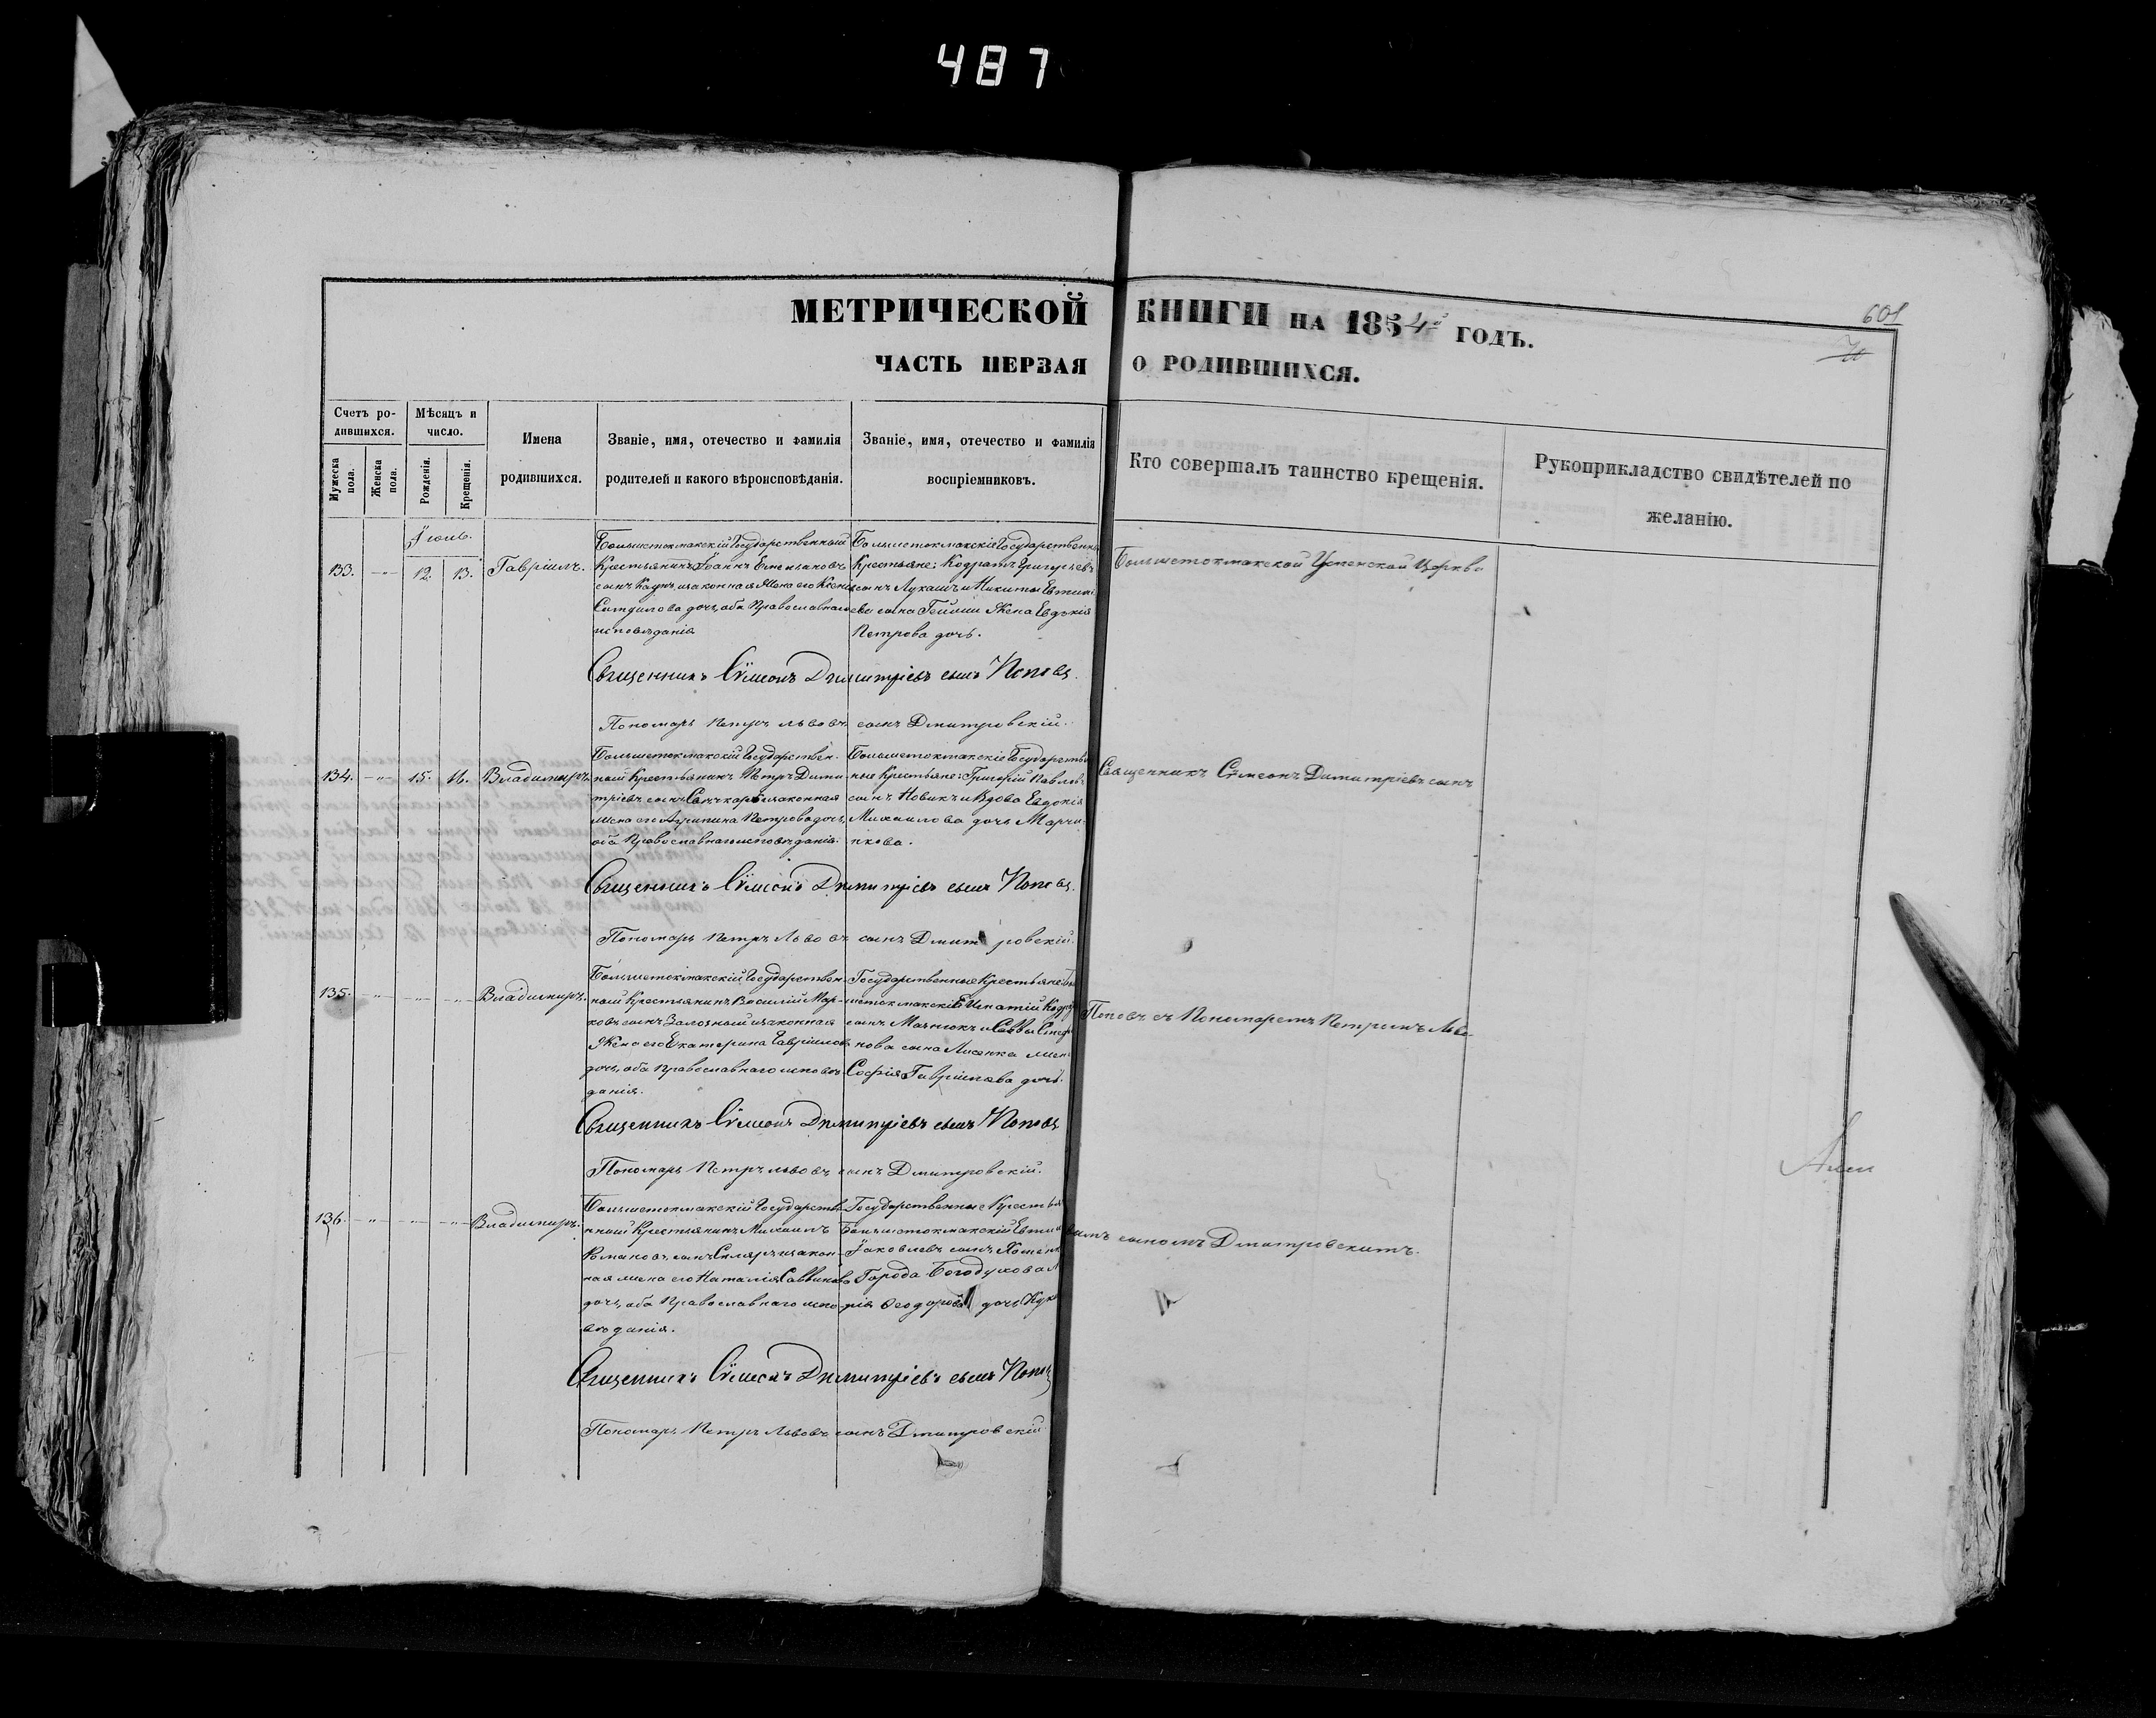 487
МЕТРИЧЕСКОЙ КНИГИ НА 1854й ГОДЪ.
601
70
ЧАСТЬ ПЕРВАЯ О РОДИВШИХСЯ.
Счетъ ро-
дившихся.
Мужеска пола.
Женска пола.
Мѣсяцъ и
число.
Рожденія.
Крещенія.
Имена
родившихся.
Званіе, имя, отечество и фамилія
родителей и какого вѣроисповѣданія.
Званіе, имя, отечество и фамилія
воспріемниковъ.
Кто совершалъ таинство крещенія.
Рукоприкладство свидѣтелей по
желанію.
Іюль.
133. — 12. 13. Гавріилъ.
Большетокмакскій Государственный
Крестьянинъ Іоаннъ Емельяновъ
сынъ законная Жена его Ксенія
дочь, оба Православнаго
исповѣданія
Большетокмакскіе Государственны
Крестьяне: Кодратъ Григорьевъ
сынъ Лукашъ и Никиты Евтихі
ева сына Жена Евдокія
Петрова дочь.
Большетокмакской Успенской Церкви
Священникъ Сѵмеонъ Димитріевъ сынъ Поповъ
Пономарь Петръ Львовъ сынъ Дмитровскій.
134. — 15. 16. Владимиръ.
Большетокмакскій Государствен-
ный Крестьянинъ Петръ Дими-
тріевъ сынъ и законная
жена его Агрипина Петрова дочь,
оба Православнаго исповѣданія.
Большетокмакскіе Государствен
ные Крестьяне: Григорій Павловъ
сынъ Новикъ и Вдова Евдокія
Михаилова дочь Марчи-
нкова.
Священникъ Сѵмеонъ Димитріевъ сынъ
Священникъ Сѵмеонъ Димитріевъ сынъ Поповъ.
Пономарь Петръ Львовъ сынъ Дмитровскій.
135. — — — Владимиръ.
Большетокмакскій Государствен-
ный Крестьянинъ Василій Мар-
ковъ сынъ Залозный и законная
Жена его Екатерина Гавріилова
дочь, оба Православнаго исповѣ-
данія.
Государственные Крестьяне
Игнатій
сынъ и Саввы
нова сына Лисенка жен
Софія Гавріилова дочь.
Поповъ съ Пономаремъ Петромъ Льво-
Священникъ Сѵмеонъ Димитріевъ сынъ Поповъ
Пономарь Петръ Львовъ сынъ Дмитровскій.
136. — — — Владимиръ.
Большетокмакскій Государстве
нный Крестьянинъ Михаилъ
Романовъ сынъ Скляръ и закон-
ная жена его Наталія Саввинова
дочь, оба Православнаго испо-
вѣданія.
Государственные Крестья
Большетокмакскій
Іаковлевъ сынъ
Города Богодухова
рія Ѳеодорова дочь
вымъ сыномъ Дмитровскимъ.
Священникъ Сѵмеонъ Димитріевъ сынъ Поповъ
Пономарь Петръ Львовъ сынъ Дмитровскій